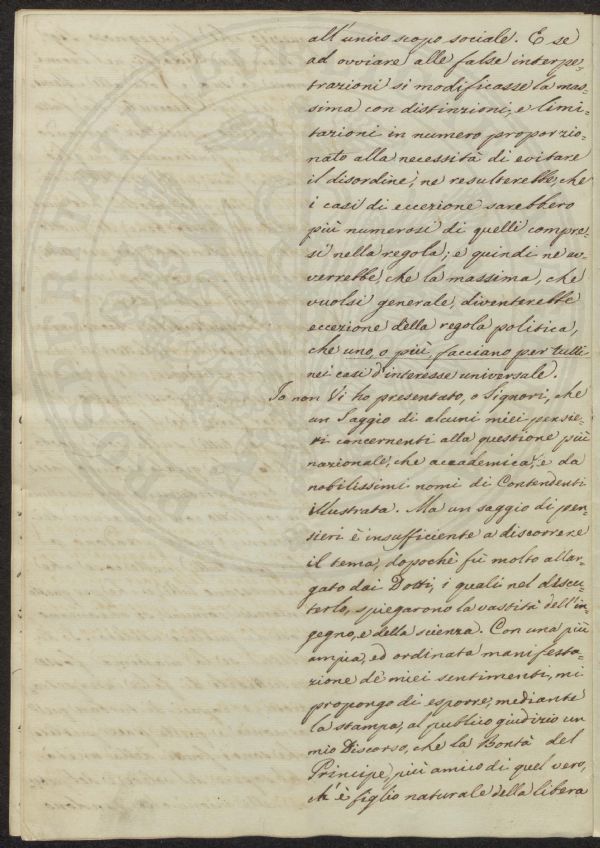 all'unico scopo sociale. E se
ad ovviare alle false interpe-
trazioni si modificasse la mas-
sima con distinzioni, e limi-
tazioni in numero proporzio-
nato alla necessità di evitare
il disordine, ne resulterebbe, che
i casi di eccezione sarebbero
più numerosi di quelli compre-
si nella regola; e quindi ne av-
verrebbe, che la massima, che
vuolsi generale, diventerebbe
eccezione della regola politica,
che uno, o più, facciano per tutti
nei casi d'interesse universale.
Io non Vi ho presentato, o Signori, che
un Saggio di alcuni miei pensie-
ri concernenti alla questione più
nazionale, che accademica, e da
nobilissimi nomi di Contendenti
illustrata. Ma un saggio di pen-
sieri è insufficiente a discorrere
il tema, dopochè fù molto allar-
gato dai Dotti, i quali nel discu-
terlo, spiegarono la vastità dell'in-
gegno, e della scienza. Con una più
ampia, ed ordinata manifesta-
zione de' miei sentimenti, mi
propongo di esporre, mediante
la stampa, al publico giudizio un
mio Discorso, che la Bontà del
Principe, più amico di quel vero,
ch'è figlio naturale della libera